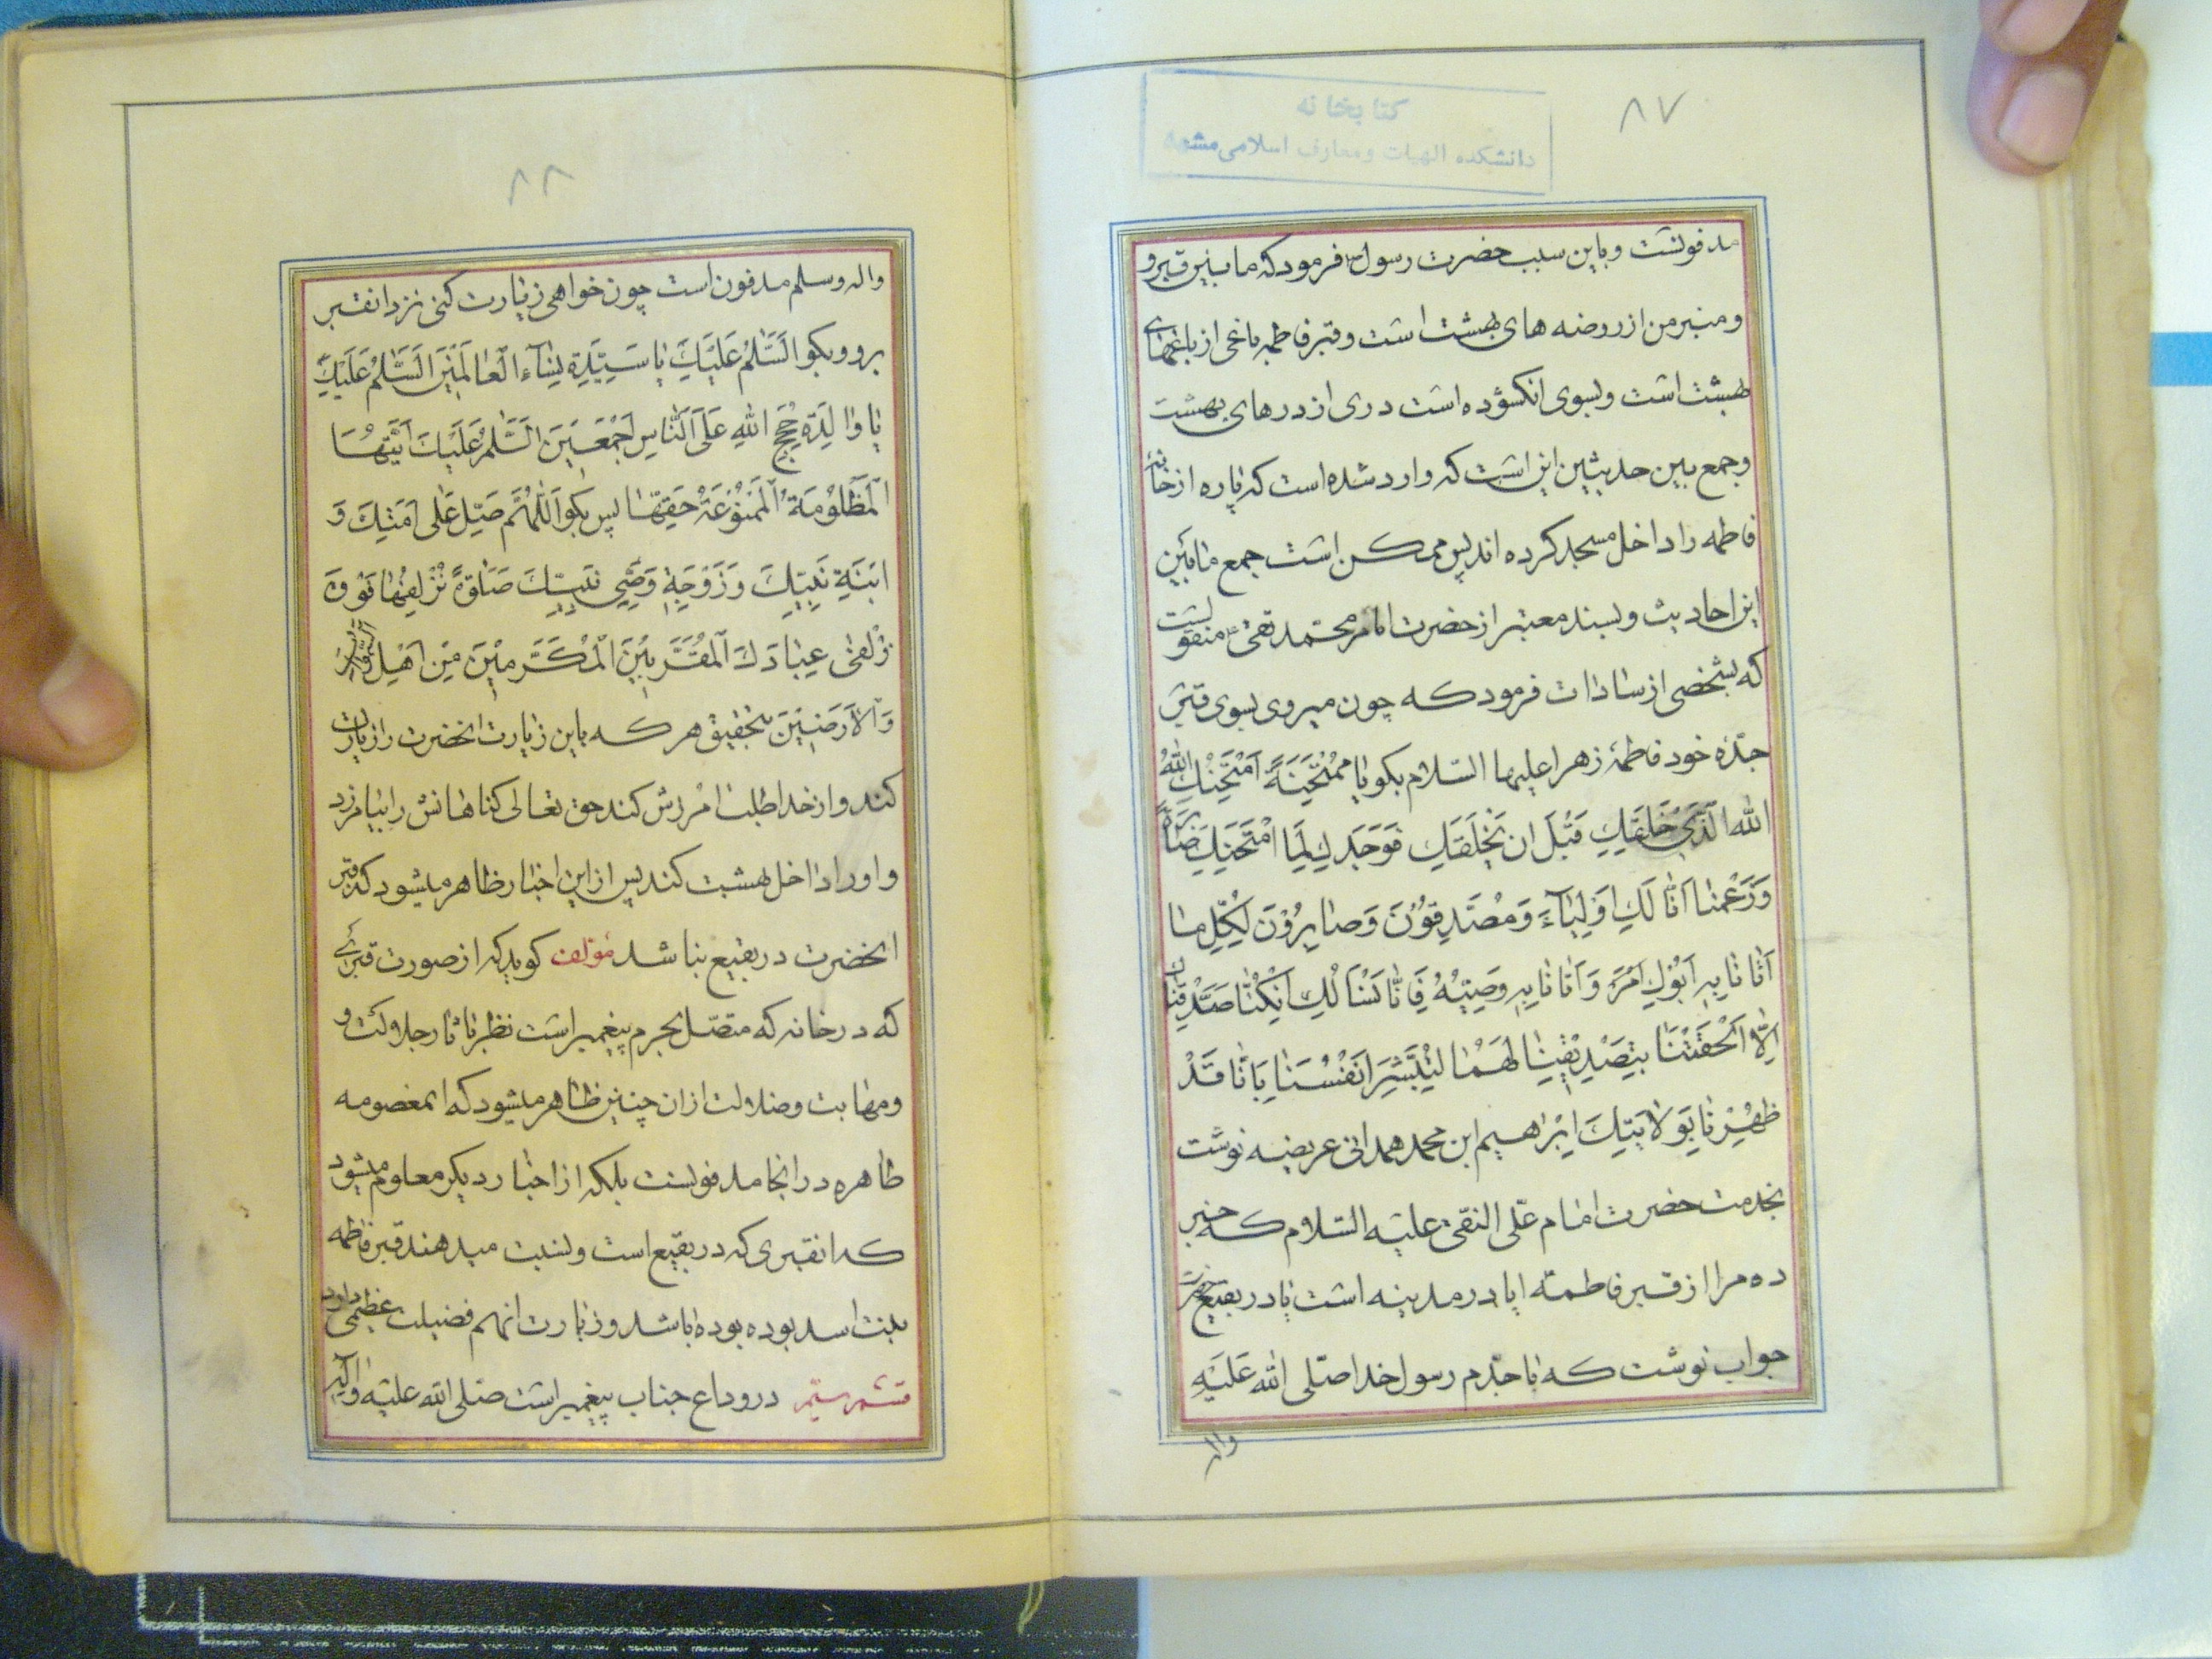 ۸۷
کتابخانه
دانشکده الهیات و معارف اسلامی مشهد
مدفونست و باین سبب حضرت رسول فرمود که ما بین قبر و
و منبر من از روضه های بهشت است و قبر فاطمه باغی از باغهای
بهشت است و بسوی آن کشوده است دری از درهای بهشت
و جمع بین حدیثین این است که وارد شده است که پاره از خانهٔ
فاطمه را داخل مسجد کرده اند پس ممکن است جمع مابین
این احادیث و بسند معتبر از حضرت امام محمد تقی منقولست
که بشخصی از سادات فرمود که چون میروی بسوی قبر
جدّهٔ خود فاطمهٔ زهرا علیها السلام بکو یا مُمْتَحَنَةً اَمْتَحَنَكِ اللهُ
الله الَّذِی خَلَقَكِ قَبْلَ ان یَخْلُقَكِ فَوَجَدَكِ لِمَا امْتَحَنَكِ صَابِرَةً
وَزَعَمْنا اَنَّا لَكِ اَوْلِیٰآءَ وَ مُصَدِّقُوْنَ وَ صٰابِرُوْنَ لِکُلِّ مٰا
اَتٰانٰا بِهِ اَبُوْكِ اَمْرَهُ وَ اَتٰانٰا بِهِ وَصِیُّهُ فَاِنّٰا نَسْأَلُكِ اِنْ کُنّٰا صَدَّقْنٰاكِ
اِلّٰا اَلْحَقْتَنٰا بِتَصْدِیْقِنٰا لَهُمٰا لِنُبَشِّرَ اَنْفُسَنٰا بِاَنّٰا قَدْ
طَهُرْنٰا بِوَلایَتِكَ اِبْرٰاهیم ابن محمد همدانی عریضه نوشت
بخدمت حضرت امام علی النقی علیه السلام که خبر
ده مرا از قبر فاطمه ایا در مدینه است یا در بقیع حضرت
جواب نوشت که با جدّم رسول خدا صلی الله عَلَیْهِ
واله
۸۸
واله وسلم مدفون است چون خواهی زیارت کنی نزد انقبر
برو و بکو السَّلٰمُ عَلَیْكِ یٰا سَیِّدَةِ نِسٰآءِ الْعٰالَمِیْنَ السَّلٰمُ عَلَیْكِ
یٰا وٰالِدَةِ حُجَجِ اللهِ عَلَی النّٰاسِ اَجْمَعِیْنَ السَّلٰمُ عَلَیْكَ اَیَّتُهَا
الْمَظْلُوْمَةُ الْمَمْنُوْعَةُ حَقَّهٰا پس بکو اَللّٰهُمَّ صَلِّ عَلٰی اَمَتِكَ وَ
ابْنَةِ نَبِیِّكَ وَ زَوْجَةِ وَصِیِّ نَبِیِّكَ صَلٰوةً تُزْلِفُهٰا فَوْقَ
زُلْفٰی عِبٰادَكَ الْمُقَرَّبِیْنَ الْمُکَرَّمِیْنَ مِنْ اَهْلِ السَّمٰوٰاتِ
وَ الْاَرَضِیْنَ بتحقیق هر که باین زیارت انحضرت را زیارت
کند و از خدا طلب امرزش کند حق تعالی کناهانش را بیامرزد
و او را داخل بهشت کند پس از این اخبار ظاهر میشود که قبر
انحضرت در بقیع نباشد مؤلف کوید که از صورت قبری
که در خانه که متصل بحرم پیغمبر است نظر باثار جلالت و
و مهابت و ضلالت از ان چنین ظاهر میشود که انمعصومه
طاهره در انجا مدفونست بلکه از اخبار دیکر معلوم میشود
که انقبری که در بقیع است و نسبت میدهند قبر فاطمه
بنت اسد بوده بوده باشد و زیارت انهم فضیلت عظیمی دارد
قسم ستیم در وداع جناب پیغمبر است صلی الله علیه و آله